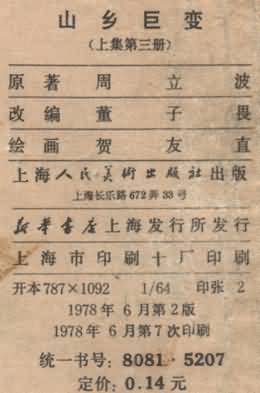 山乡巨变
(上集第三册)
原著周立波
改编董子畏
绘画贺友直
上海人民美術出版社出版
上海长乐路672弄33号
新华书店上海发行所发行
上海市印刷十厂印刷
开本787×1092 1/64 印张 2
1978年 6月第2版
1978年 6月第7次印刷
统一书号: 8081·5207
定价: 0.14元